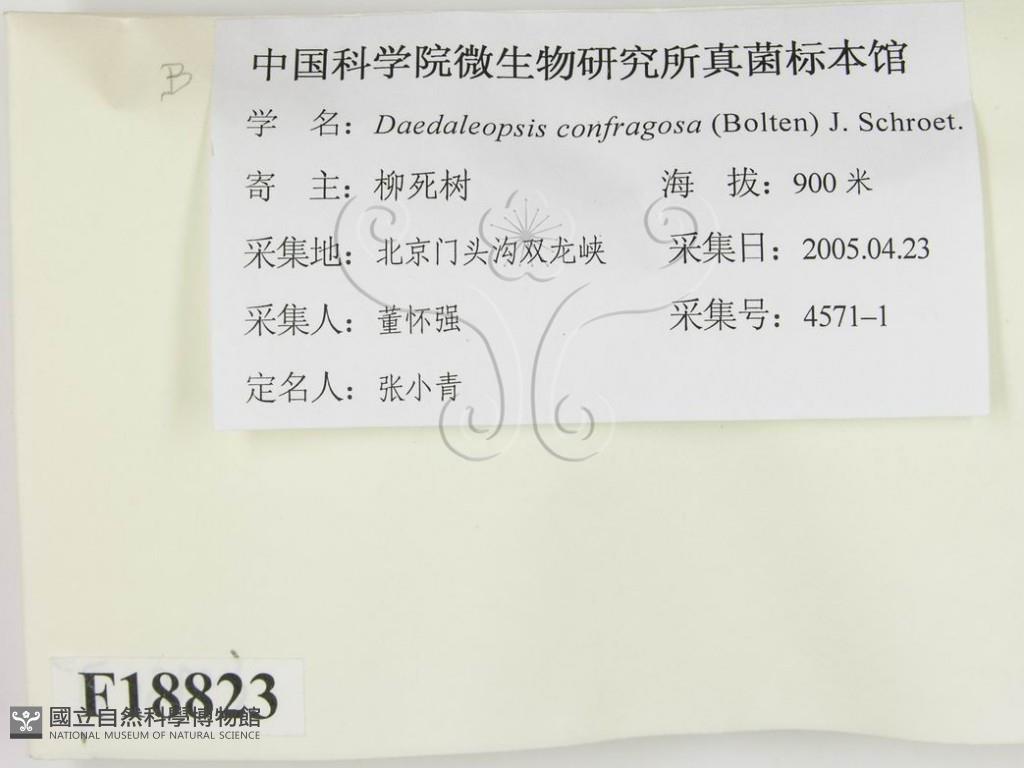 B
中国科学院微生物研究所真菌标本馆
学 名：Daedaleopsis confragosa (Bolten) J. Schroet.
寄 主：柳死树 海 拔：900 米
采集地：北京门头沟双龙峡 采集日：2005.04.23
采集人：董怀强 采集号：4571–1
定名人：张小青
F18823
國立自然科學博物館
NATIONAL MUSEUM OF NATURAL SCIENCE